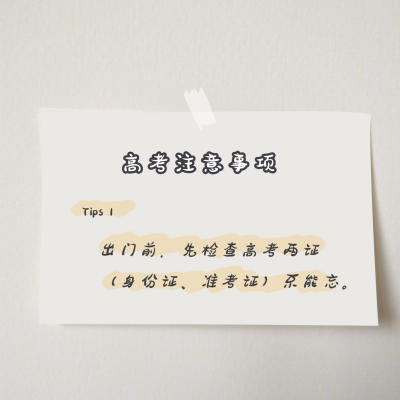 高考注意事项
Tips 1
出门前，先检查高考两证
（身份证、准考证）不能忘。